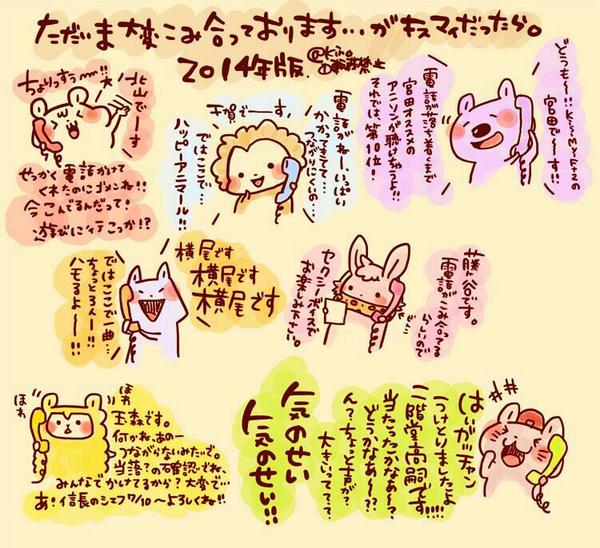 ただいま大変こみ合っております…がキスマイだったら。
2014年版.
ちょりっすぅ〜!!
北山でーす
せっかく電話かけて
くれたのにゴメンね!!
今こんでるんだって!
遊びに行こっか!?
千賀でーす!
電話がねー、いっぱい
かかってきてて…
つながりにくいの…
ではここで…
ハッピーアニマール!!
どうも〜!!Kis-My-Ft2の
宮田で〜す!!
電話が落ち着くまで
宮田オススメの
アニソンが聴いちゃうよ!!
それでは、第10位!
横尾です
横尾です
横尾です
ではここで一曲…
ちょっと3人ー!!
ハモるよ〜!!
藤ヶ谷です。
電話がこみ合ってる
らしいので
セクシーボイスで
お楽しみ下さい。
ほわ
ほわ
玉森です。
何かね、あの〜
つながらないみたいで。
当落?の確認でね、
みんなでかけてるから?大変で…
あ!信長のシェフ7/10〜よろしくね!!
はぃ!ガッチャン
つけとりましたよ
二階堂高嗣です!!!!
当たったかなぁ〜?
どうかなあ〜??
ん?ちょっと声が?
大きいってて?
気のせい
気のせい!!!